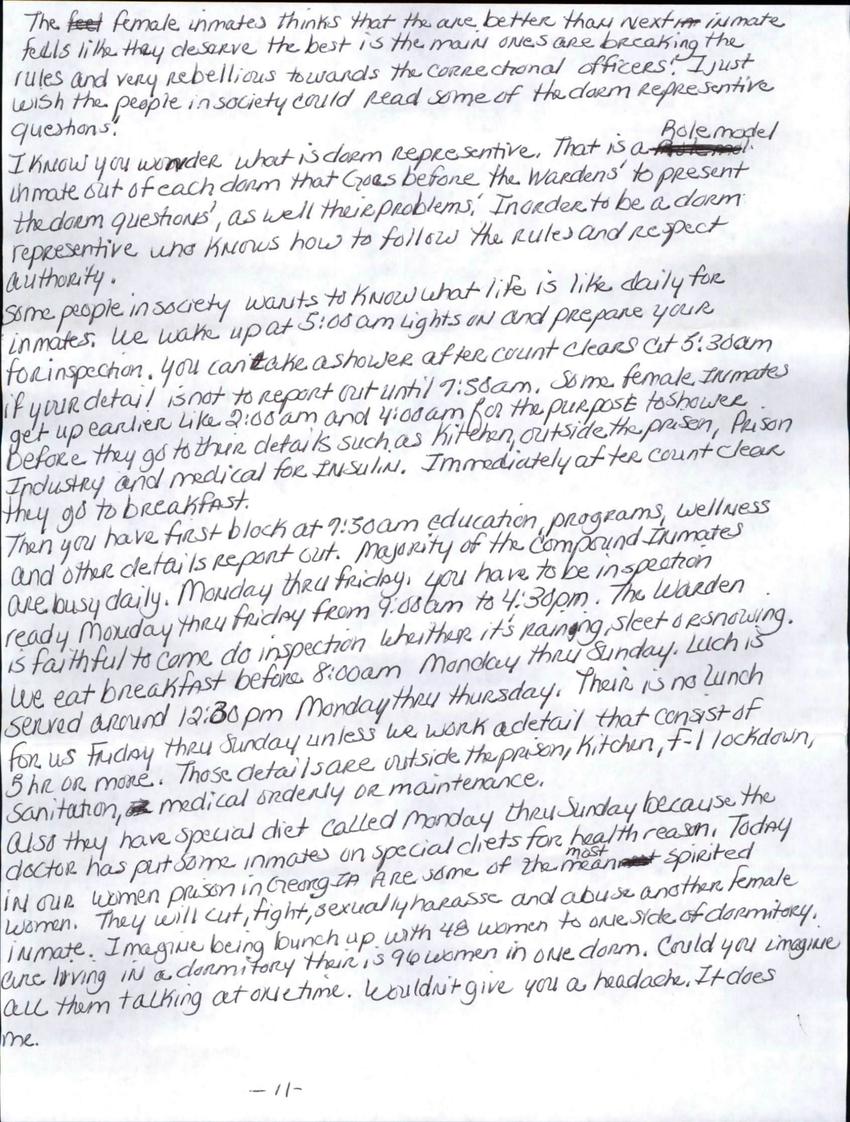 The feel female inmates thinks that the are better than next in inmate
feels like they deserve the best is the main ones are breaking the
rules and very rebellious towards the correctional officers! I just
wish the people in society could read some of the dorm representive
questions!
I know you wonder what is dorm representive. That is a Role model
inmate out of each dorm that Goes before the Wardens' to present
the dorm questions', as well their problems! Inorder to be a dorm
representive who knows how to follow the rules and respect
authority.
Some people in society wants to know what life is like daily for
inmates. We wake up at 5:00 am Lights on and prepare your
for inspection. You can take a shower after count clears at 5:30am
if your detail is not to report out until 7:50am. Some female Inmates
get up earlier like 2:00am and 4:00am for the purpose to shower
before they go to their details such as Kitchen, outside the prison, Prison
Industry and medical for INSULIN. Immediately after count clear
they go to breakfast.
Then you have first block at 7:50am education, programs, wellness
and other details report out. Majority of the Compound Inmates
are busy daily. Monday thru friday. You have to be inspection
ready Monday thru friday from 9:00am to 4:30pm. The Warden
is faithful to come do inspection whether it's raining, sleet or snowing.
We eat breakfast before 8:00am Monday thru Sunday. Luch is
served around 12:30pm Monday thru thursday. Their is no lunch
for us Friday thru Sunday unless we work a detail that consist of
5 hr or more. Those details are outside the prison, Kitchen, F-1 lockdown,
Sanitation, medical orderly or maintenance.
Also they have special diet called Monday thru Sunday because the
doctor has put some inmates on special diets for health reason. Today
in our women prison in GeorgIA Are some of the most mean spirited
women. They will cut, fight, sexually harasse and abuse another female
inmate. Imagine being bunch up with 48 women to one side of dormitory.
living in a dormitory their is 96 women in one dorm. Could you imagine
all them talking at one time. Wouldn't give you a headache. It does
me.
- 11-